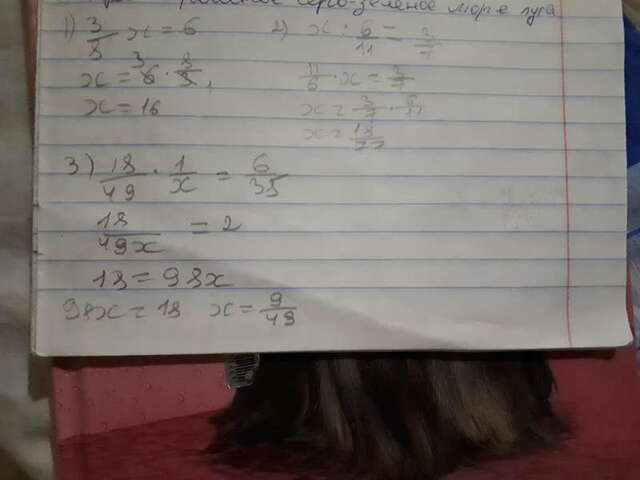 серо-зеленое море луга
1) 3/8 x = 6
x = 6 · 8/3,
x = 16
2) x : 6/11 = 3/7
11/6 · x = 3/7
x = 3/7 · 6/11
x = 18/77
3) 18/49 · 1/x = 6/35
18/49x = 2
18 = 98x
98x = 18 x = 9/49